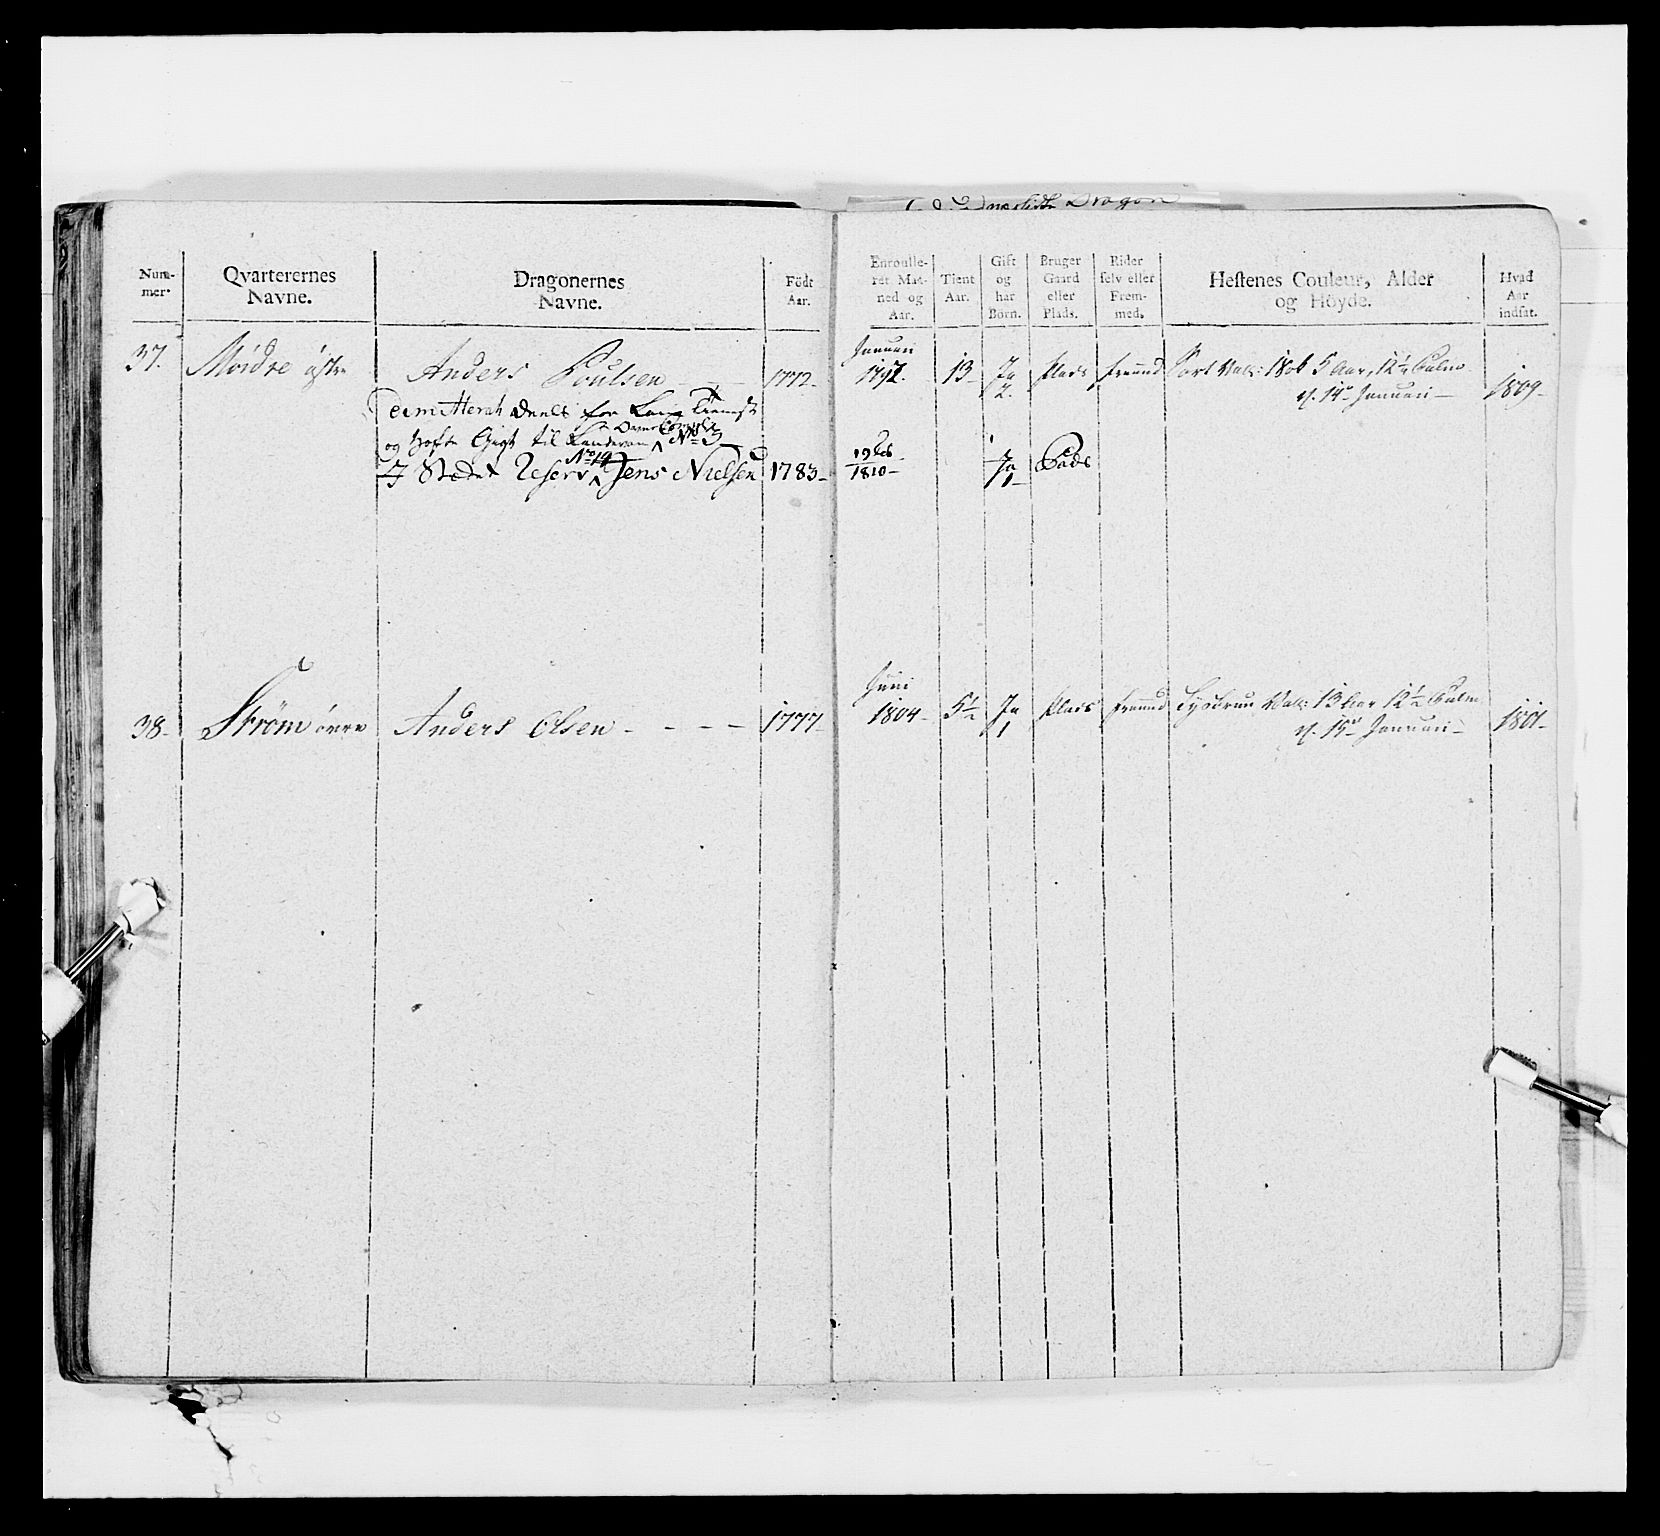 Dragon
Num-
mer.
Qvarterernes
Navne.
Dragonernes
Navne.
Födt
Aar.
Enroulle-
ret Maa-
ned og
Aar.
Tient
Aar.
Gift
og
har
Börn.
Bruger
Gaard
eller
Plads.
Rider
selv eller
Frem-
med.
Hestenes Couleur, Alder
og Höyde.
Hvad
Aar
indsat.
37. Moidre östre Anders Poulsen 1772. Januari 1797. 13 Ja 2. Plads fremmed Sort Val: 1806 5 Aar, 12½ Palm
14 Januari 1809
og Hofte Gigt til Landeværn No 3
No 19
I Stædet Reserv Jens Nielsen 1783 19 Feb 1810 Ja 1 Plads
38 Strøm övre Anders Olsen 1777 Juni 1804 5½ Ja 1 Plads fremmed Lysbrun Val: 13 Aar 12½ Palm
15 Januari 1801